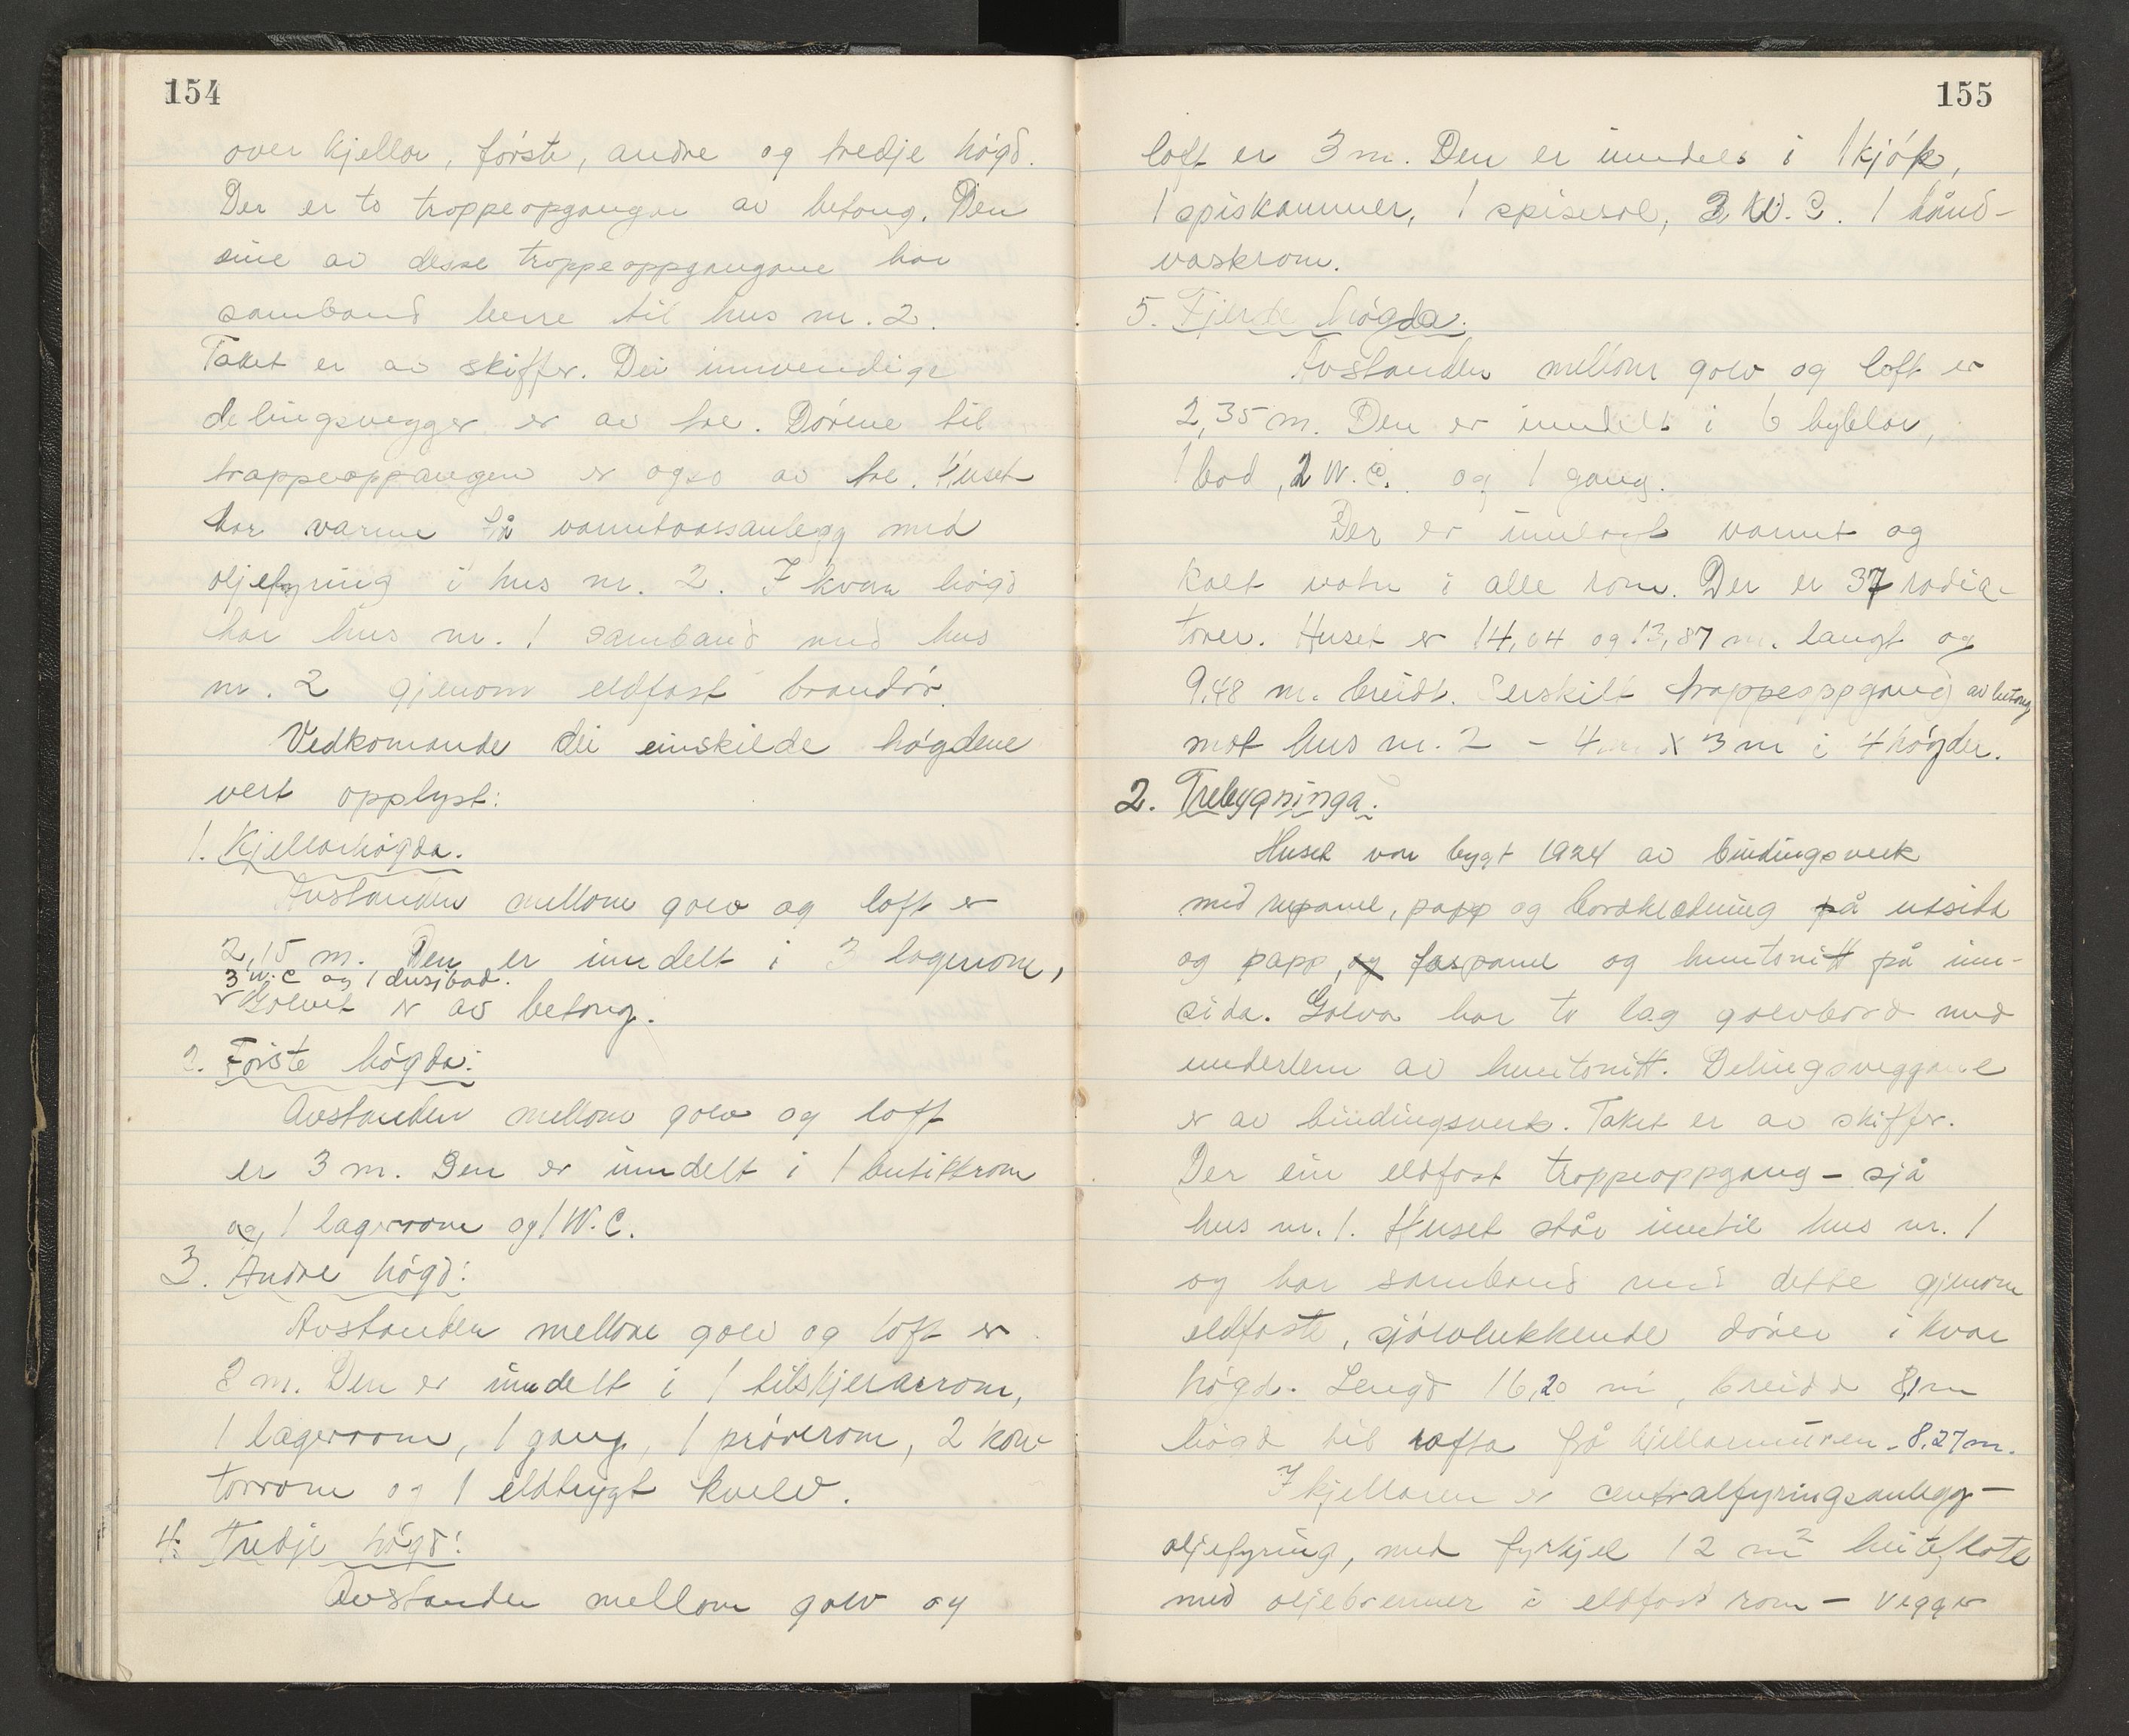 154
over kjellar, første, andre og tredje høgd.
Der er to troppeopgangar av betong. Den
eine av desse troppeoppgangane har
samband berre til hus nr. 2.
Taket er av skiffer. Dei innvendige
delingsvegger er av tre. Dørene til
trappeoppgangen er også av tre. Huset
har varme frå varmtvassanlegg med
oljefyring i hus nr. 2. I kvar høgd
har hus nr. 1 samband med hus
nr. 2 gjenom eldfast branddør.
Vedkomande dei einskilde høgdene
vert opplyst:
1. Kjellarhøgda.
Avstanden mellom golv og loft er
2,15 m. Den er inndelt i 3 lagerrom,
3 W.C og 1 dusjbad.
Golvet er av betong.
2. Første høgda:
Avstanden mellom golv og loft
er 3 m. Den er inndelt i 1 butikkrom
og 1 lagerrom og 1 W.C.
3. Andre høgd:
Avstanden mellom golv og loft er
3 m. Den er inndelt i 1 tilskjerarrom,
1 lagerrom, 1 gang, 1 prøverom, 2 kon
torrom og 1 eldtrygt kvelv.
4. Tredje høgd:
Avstanden mellom golv og
155
loft er 3 m. Den er inndelt i 1 kjøk,
1 spiskammer, 1 spisesal, 2 W.C. 1 hånd-
vaskrom.
5. Fjerde høgda.
Avstanden mellom golv og loft er
2,35 m. Den er inndelt i 6 hyblar,
1 bad, 2 W.C. og 1 gang.
Der er innlagt varmt og
kalt vatn i alle rom. Der er 37 radia-
torer. Huset er 14,04 og 13,87 m. langt og
9,48 m. breidt. Serskilt trappeoppgang av betong
mot hus nr. 2 - 4 m x 3 m i 4 høgder.
2. Trebygninga.
Huset var bygt 1924 av bindingsverk
med panel, papp og bordklædning på utsida
og papp, og faspanel og huntonitt på inn-
sida. Golva har to lag golvbord med
underlem av huntonitt. Delingsveggane
er av bindingsverk. Taket er av skiffer.
Der ein eldfast troppeoppgang - sjå
hus nr. 1. Huset står inntil hus nr. 1
og har samband med dette gjenom
eldfaste, sjølvlukkende dører i kvar
høgd. Lengd 16,20 m, breidd 8,1 m
høgd til rafta frå kjellarmuren - 8.27 m.
I kjellaren er centralfyringsanlegg -
oljefyring, med fyrkjel 12 m² heiteflate
med oljebrenner i eldfast rom - vegger